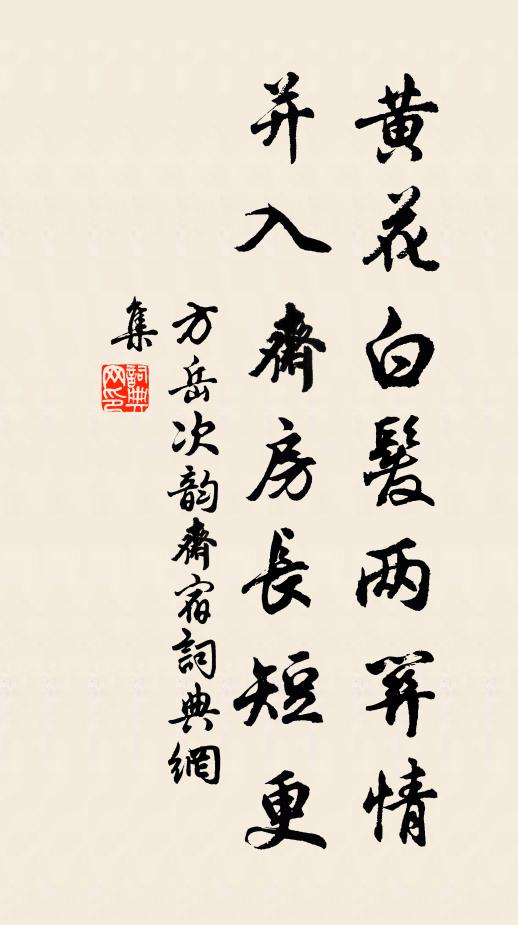 黄花白髮两關情
并入齋房長短更
方岳次韵齋宿詞典網
集
詞典
网印